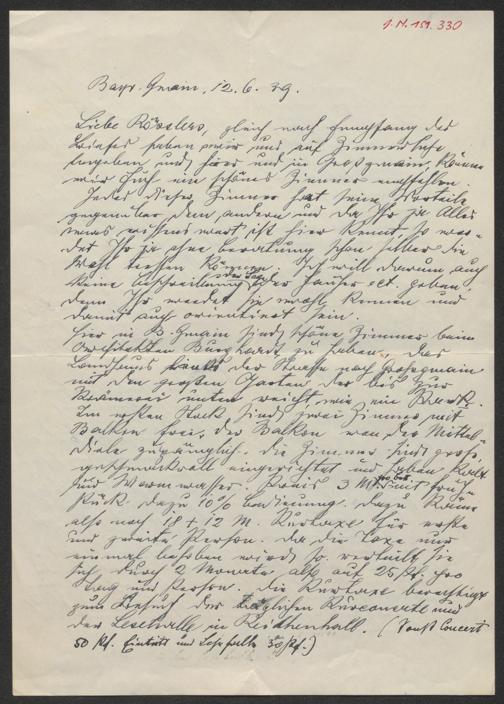 J.N. 151.330
Bayr. Gmain, 12.6.39.
Liebe Rösslers, gleich nach Empfang des
Briefes haben wir uns auf Zimmersuche
begeben und hier und in Grossgmain können
wir Euch ein schönes Zimmer empfehlen.
Jedes dieser Zimmer hat seine Vorteile
gegenüber dem andern und da Ihr ja Alles
was wissenswert ist hier kennt, so wer-
det Ihr ja ohne Beratung schon selber die
Wahl treffen können. Ich will darum auch
keine Beschreibung der Lage der Häuser ect. geben
denn Ihr werdet sie wohl kennen und
damit auch orientiert sein.
Hier in B. Gmain sind schöne Zimmer beim
Architekten Burghardt zu haben, das
Landhaus links der Strasse nach Grossgmain
mit dem großen Garten der bis zur
unten reicht, wie ein Park.
Im ersten Stock sind zwei Zimmer mit
Balkon frei, der Balkon von der Mittel-
diele zugänglich. Die Zimmer sind groß,
geschmackvoll eingerichtet und haben Kalt
und Warmwasser. Preis 3 M pro Bett mit Früh-
stück. dazu 10% Bedienung. Dazu käme
also noch 18 + 12 M. Kurtaxe für erste
und zweite Person. Da die Taxe nur
einmal behoben wird, so verteilt sie
sich durch 2 Monate also auf 25 Pf. pro
Tag und Person. Die Kurtaxe berechtigt
zum Besuch der täglichen Kurconcerte und
der Lesehalle in Reichenhall. (Sonst Concert
50 Pf. Eintritt und Lesehalle 30 Pf.)